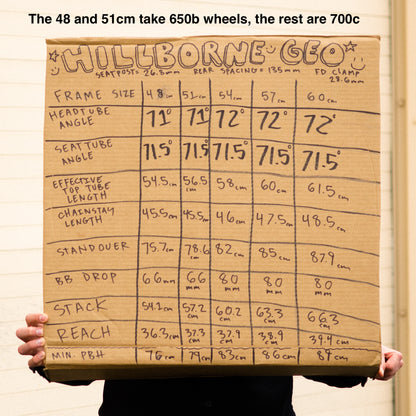 The 48 and 51cm take 650b wheels, the rest are 700c
HILLBORNE GEO
SEATPOST= 26.8mm REAR SPACING= 135mm FD CLAMP
28.6mm
FRAME SIZE 48cm 51cm 54cm 57cm 60cm
HEADTUBE ANGLE 71° 71° 72° 72° 72°
SEATTUBE ANGLE 71.5° 71.5° 71.5° 71.5° 71.5°
EFFECTIVE TOP TUBE LENGTH 54.5cm 56.5cm 58cm 60cm 61.5cm
CHAINSTAY LENGTH 45.5cm 45.5cm 46cm 47.5cm 48.5cm
STANDOVER 75.7cm 78.6cm 82cm 85cm 87.9cm
BB DROP 66mm 66mm 80mm 80mm 80mm
STACK 54.1cm 57.2cm 60.2cm 63.3cm 66.3cm
REACH 36.3cm 37.3cm 37.9cm 38.9cm 39.4cm
MIN. PBH 76cm 79cm 83cm 86cm 89cm